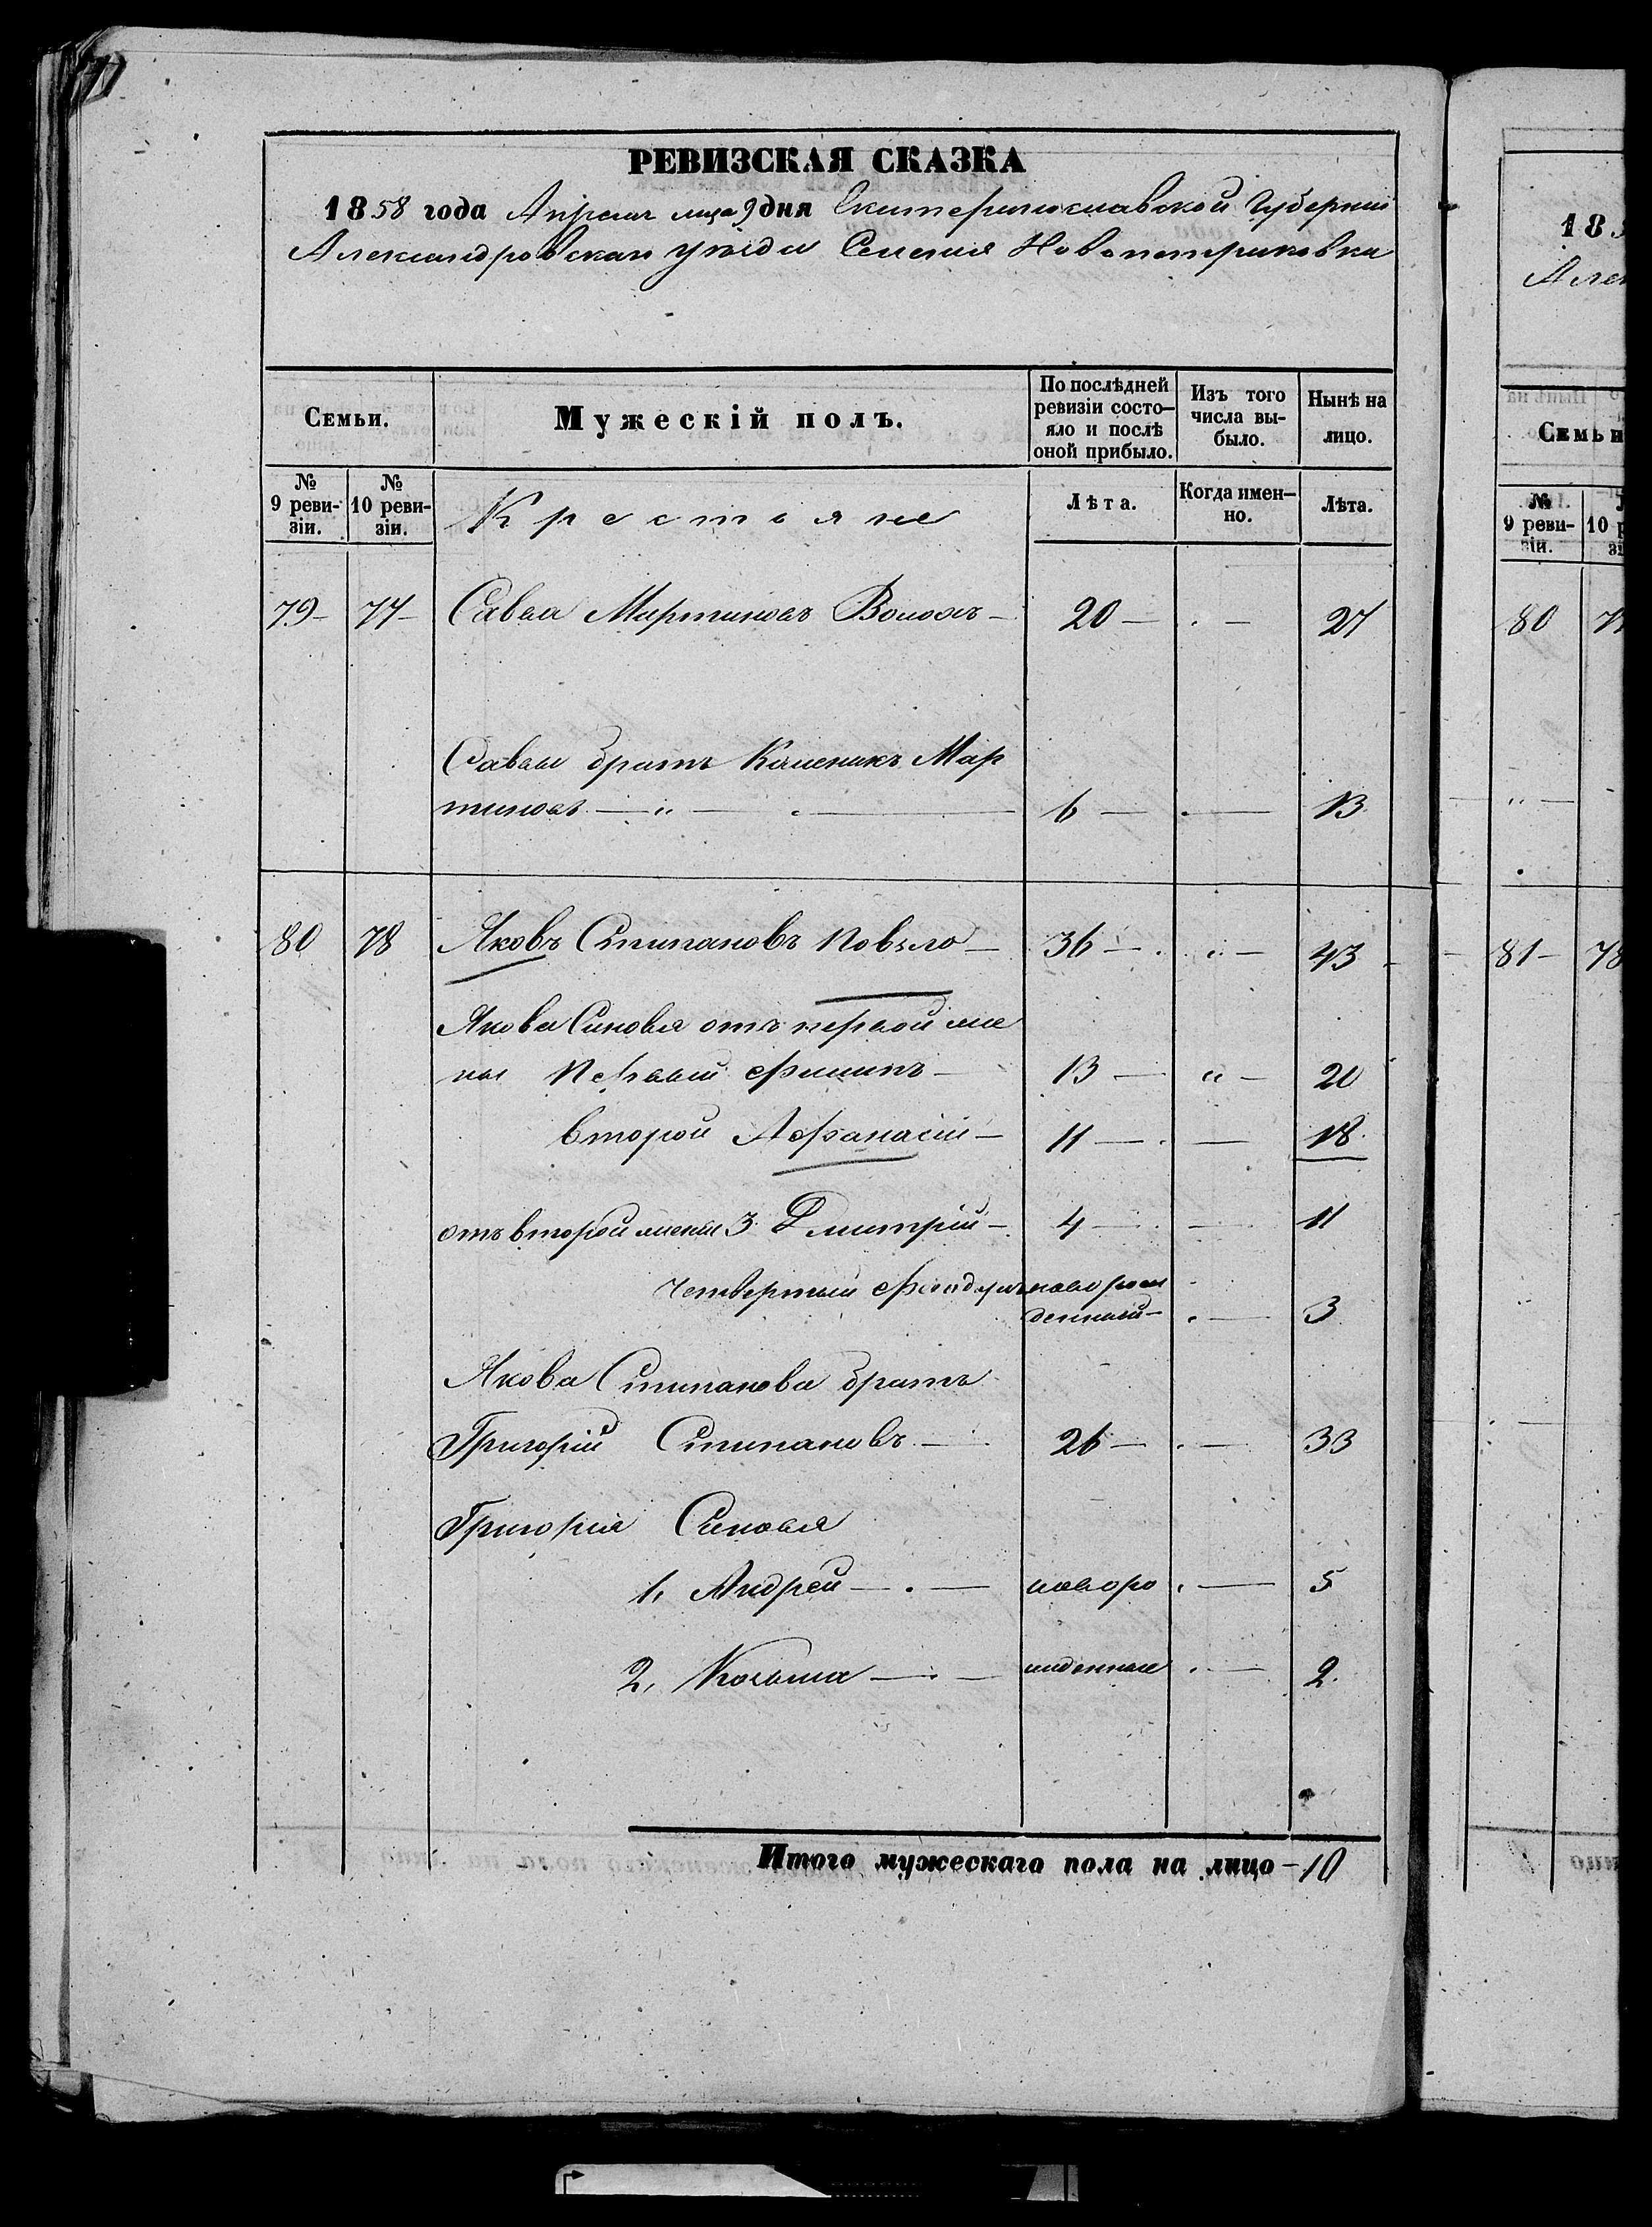 РЕВИЗСКАЯ СКАЗКА
1858 года Апреля мца 9 дня Екатеринославской Губернии
Александровскаго уезда Селения Новопетриковки
Семьи.
Мужескій полъ.
По послѣдней ревизіи состояло и послѣ оной прибыло.
Изъ того числа выбыло.
Нынѣ на лицо.
№ 9 ревизіи.
№ 10 ревизіи.
Крестьяне
Лѣта.
Когда именно.
Лѣта.
79 77 Савва Мартиновъ 20 27
Саввы братъ Мар
тиновъ 6 13
80 78 Яковъ Стипановъ 36 43
Якова Синовья отъ первой же
ны Первый Филипъ 13 20
Второй Афанасий 11 18
отъ второй жены 3 Дмитрій 4 11
Четвертый новорож
денный 3
Якова Стипанова братъ
Григорій Стипановъ 26 33
Григорія Синовья
1, Андрей новоро 5
2, Козьма жденные 2
Итого мужескаго пола на лицо 10
185
Алек
Семьи
№ 9 ревизіи.
№ 10
80
81 78